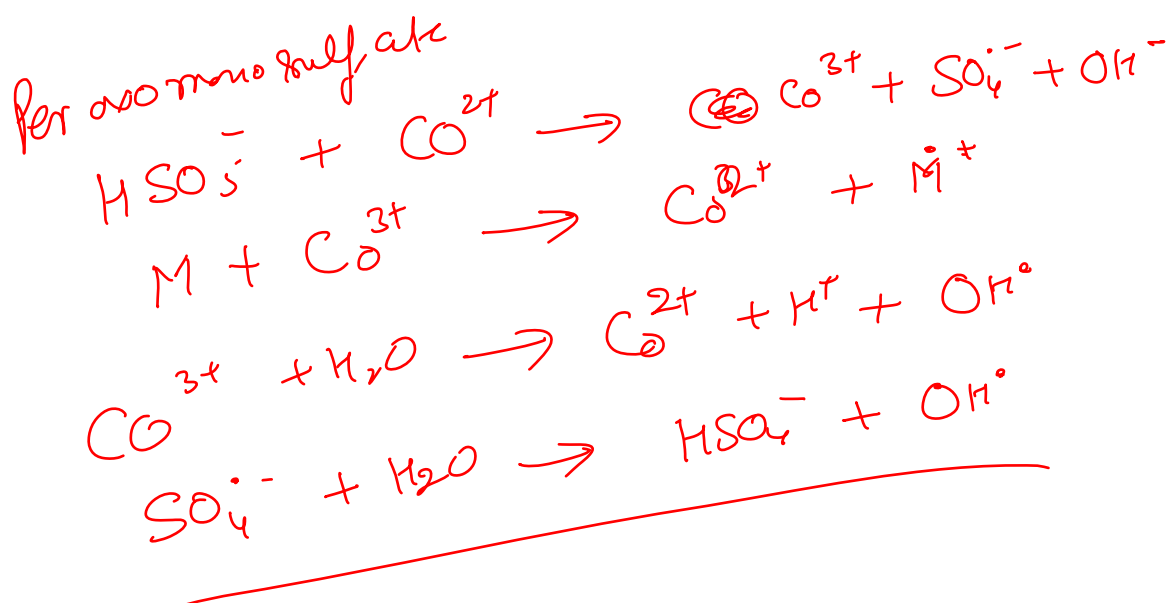 Peroxomonosulfate
HSO₅⁻ + CO²⁺ → Co³⁺ + SO₄•⁻ + OH⁻
M + Co³⁺ → Co²⁺ + M•⁺
CO³⁺ + H₂O → Co²⁺ + H⁺ + OH•
SO₄•⁻ + H₂O → HSO₄⁻ + OH•